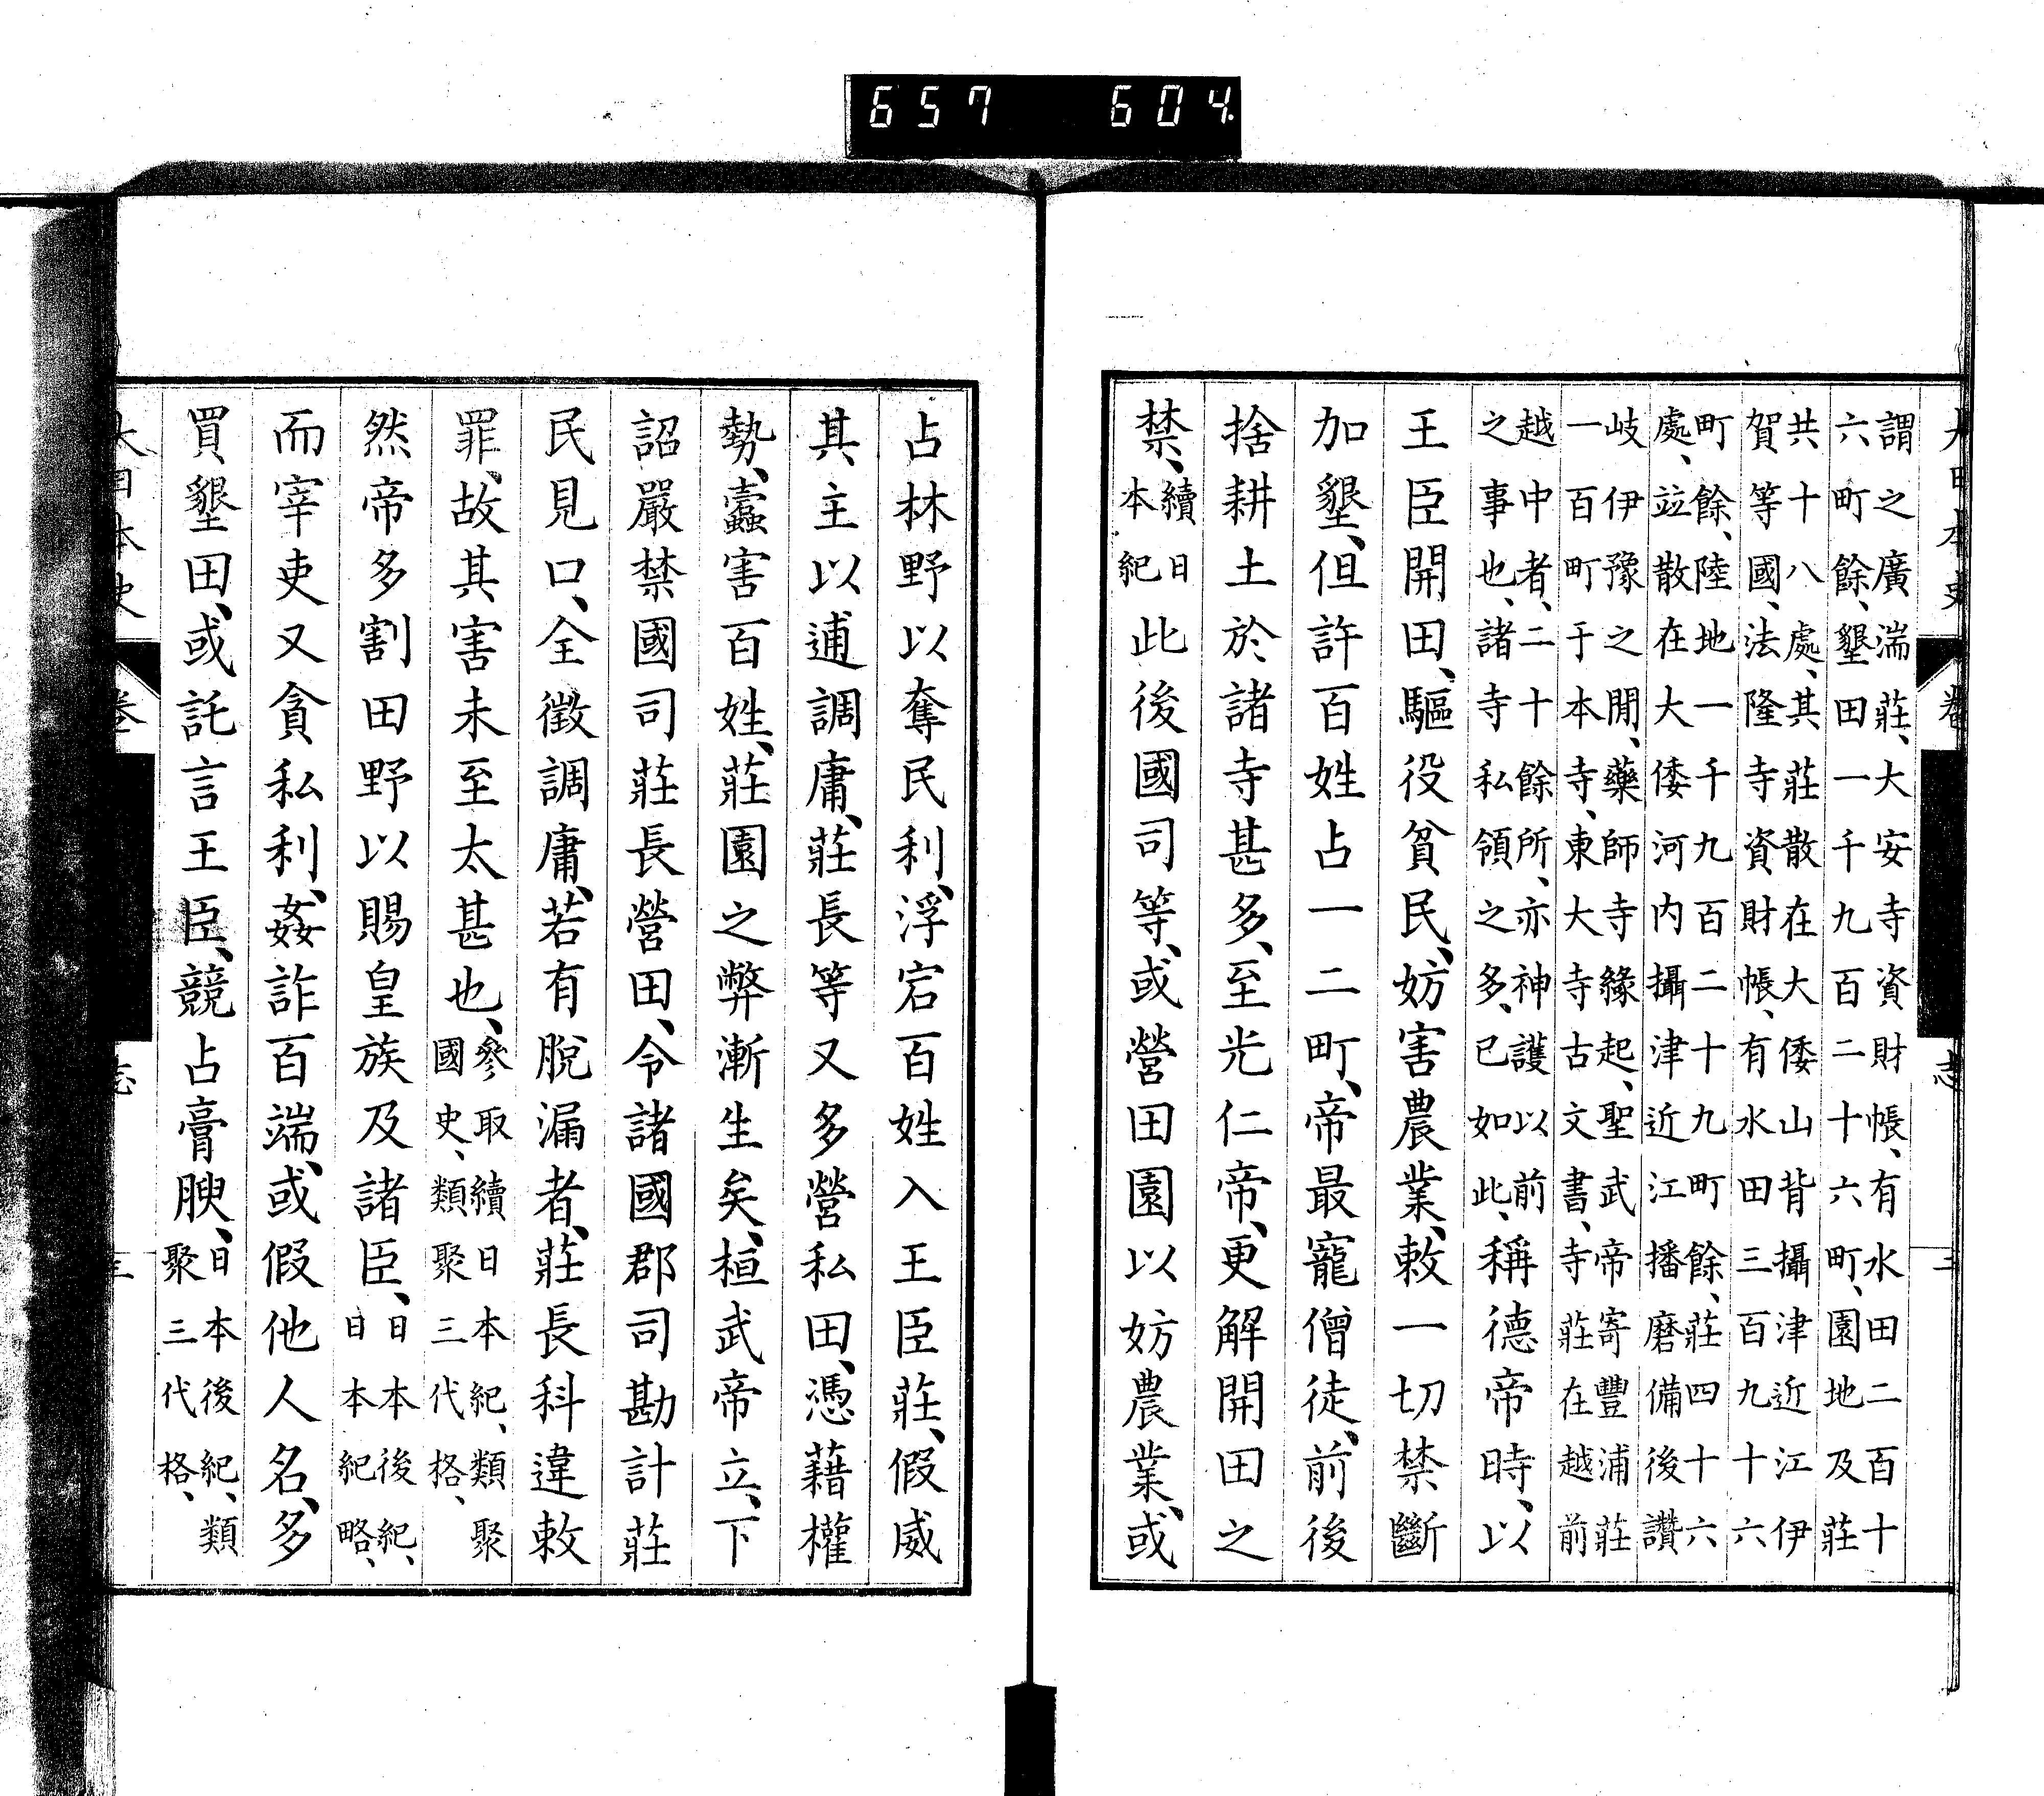 657 604.
大日本史 卷 志 三
謂之廣湍莊、大安寺資財帳、有水田二百十
六町餘、墾田一千九百二十六町、園地及莊
共十八處、其莊散在大倭山背攝津近江伊
賀等國、法隆寺資財帳、有水田三百九十六
町餘、陸地一千九百二十九町餘、莊四十六
處、竝散在大倭河内攝津近江播磨備後讚
岐伊豫之閒、藥師寺緣起、聖武帝寄豐浦莊
一百町于本寺、東大寺古文書、寺莊在越前
越中者、二十餘所、亦神護以前
之事也、諸寺私領之多、已如此、稱德帝時、以
王臣開田、驅役貧民、妨害農業、敕一切禁斷
加墾、但許百姓占一二町、帝最寵僧徒、前後
捨耕土於諸寺甚多、至光仁帝、更解開田之
禁、續日本紀此後國司等、或營田園以妨農業、或
占林野以奪民利、浮宕百姓入王臣莊、假威
其主以逋調庸、莊長等又多營私田、憑藉權
勢、蠹害百姓、莊園之弊漸生矣、桓武帝立、下
詔嚴禁國司莊長營田、令諸國郡司勘計莊
民見口、全徵調庸、若有脫漏者、莊長科違敕
罪、故其害未至太甚也、參取續日本紀、類聚國史、類聚三代格、
然帝多割田野以賜皇族及諸臣、日本後紀、日本紀略、
而宰吏又貪私利、姦詐百端、或假他人名、多
買墾田、或託言王臣、競占膏腴、日本後紀、類聚三代格、
大日本史 卷 志 三